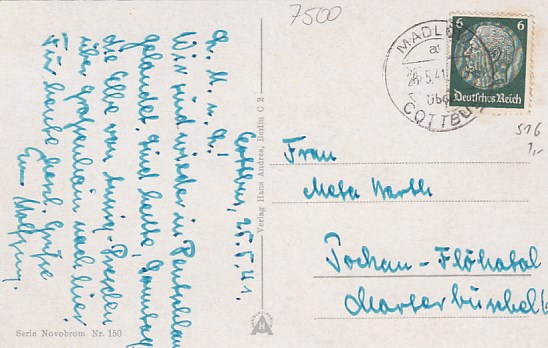 7500
MADLOW
a
25.5.41
über
COTTBUS
6 6
Deutsches Reich
516
1,-
Cottbus, 25.5.41.
L. M. u. L!
Wir sind wieder in Deutschland
gelandet. Sind heute, Sonntag
die Elbe von Dresden
über Großenhain nach hier.
Für heute herzl. Grüße
Euer Wolfgang.
Verlag Hans Andres, Berlin C 2
Frau
Meta Barth
Pockau - Flöhatal
Marterbüschel 6
Serie Novobrom Nr. 150